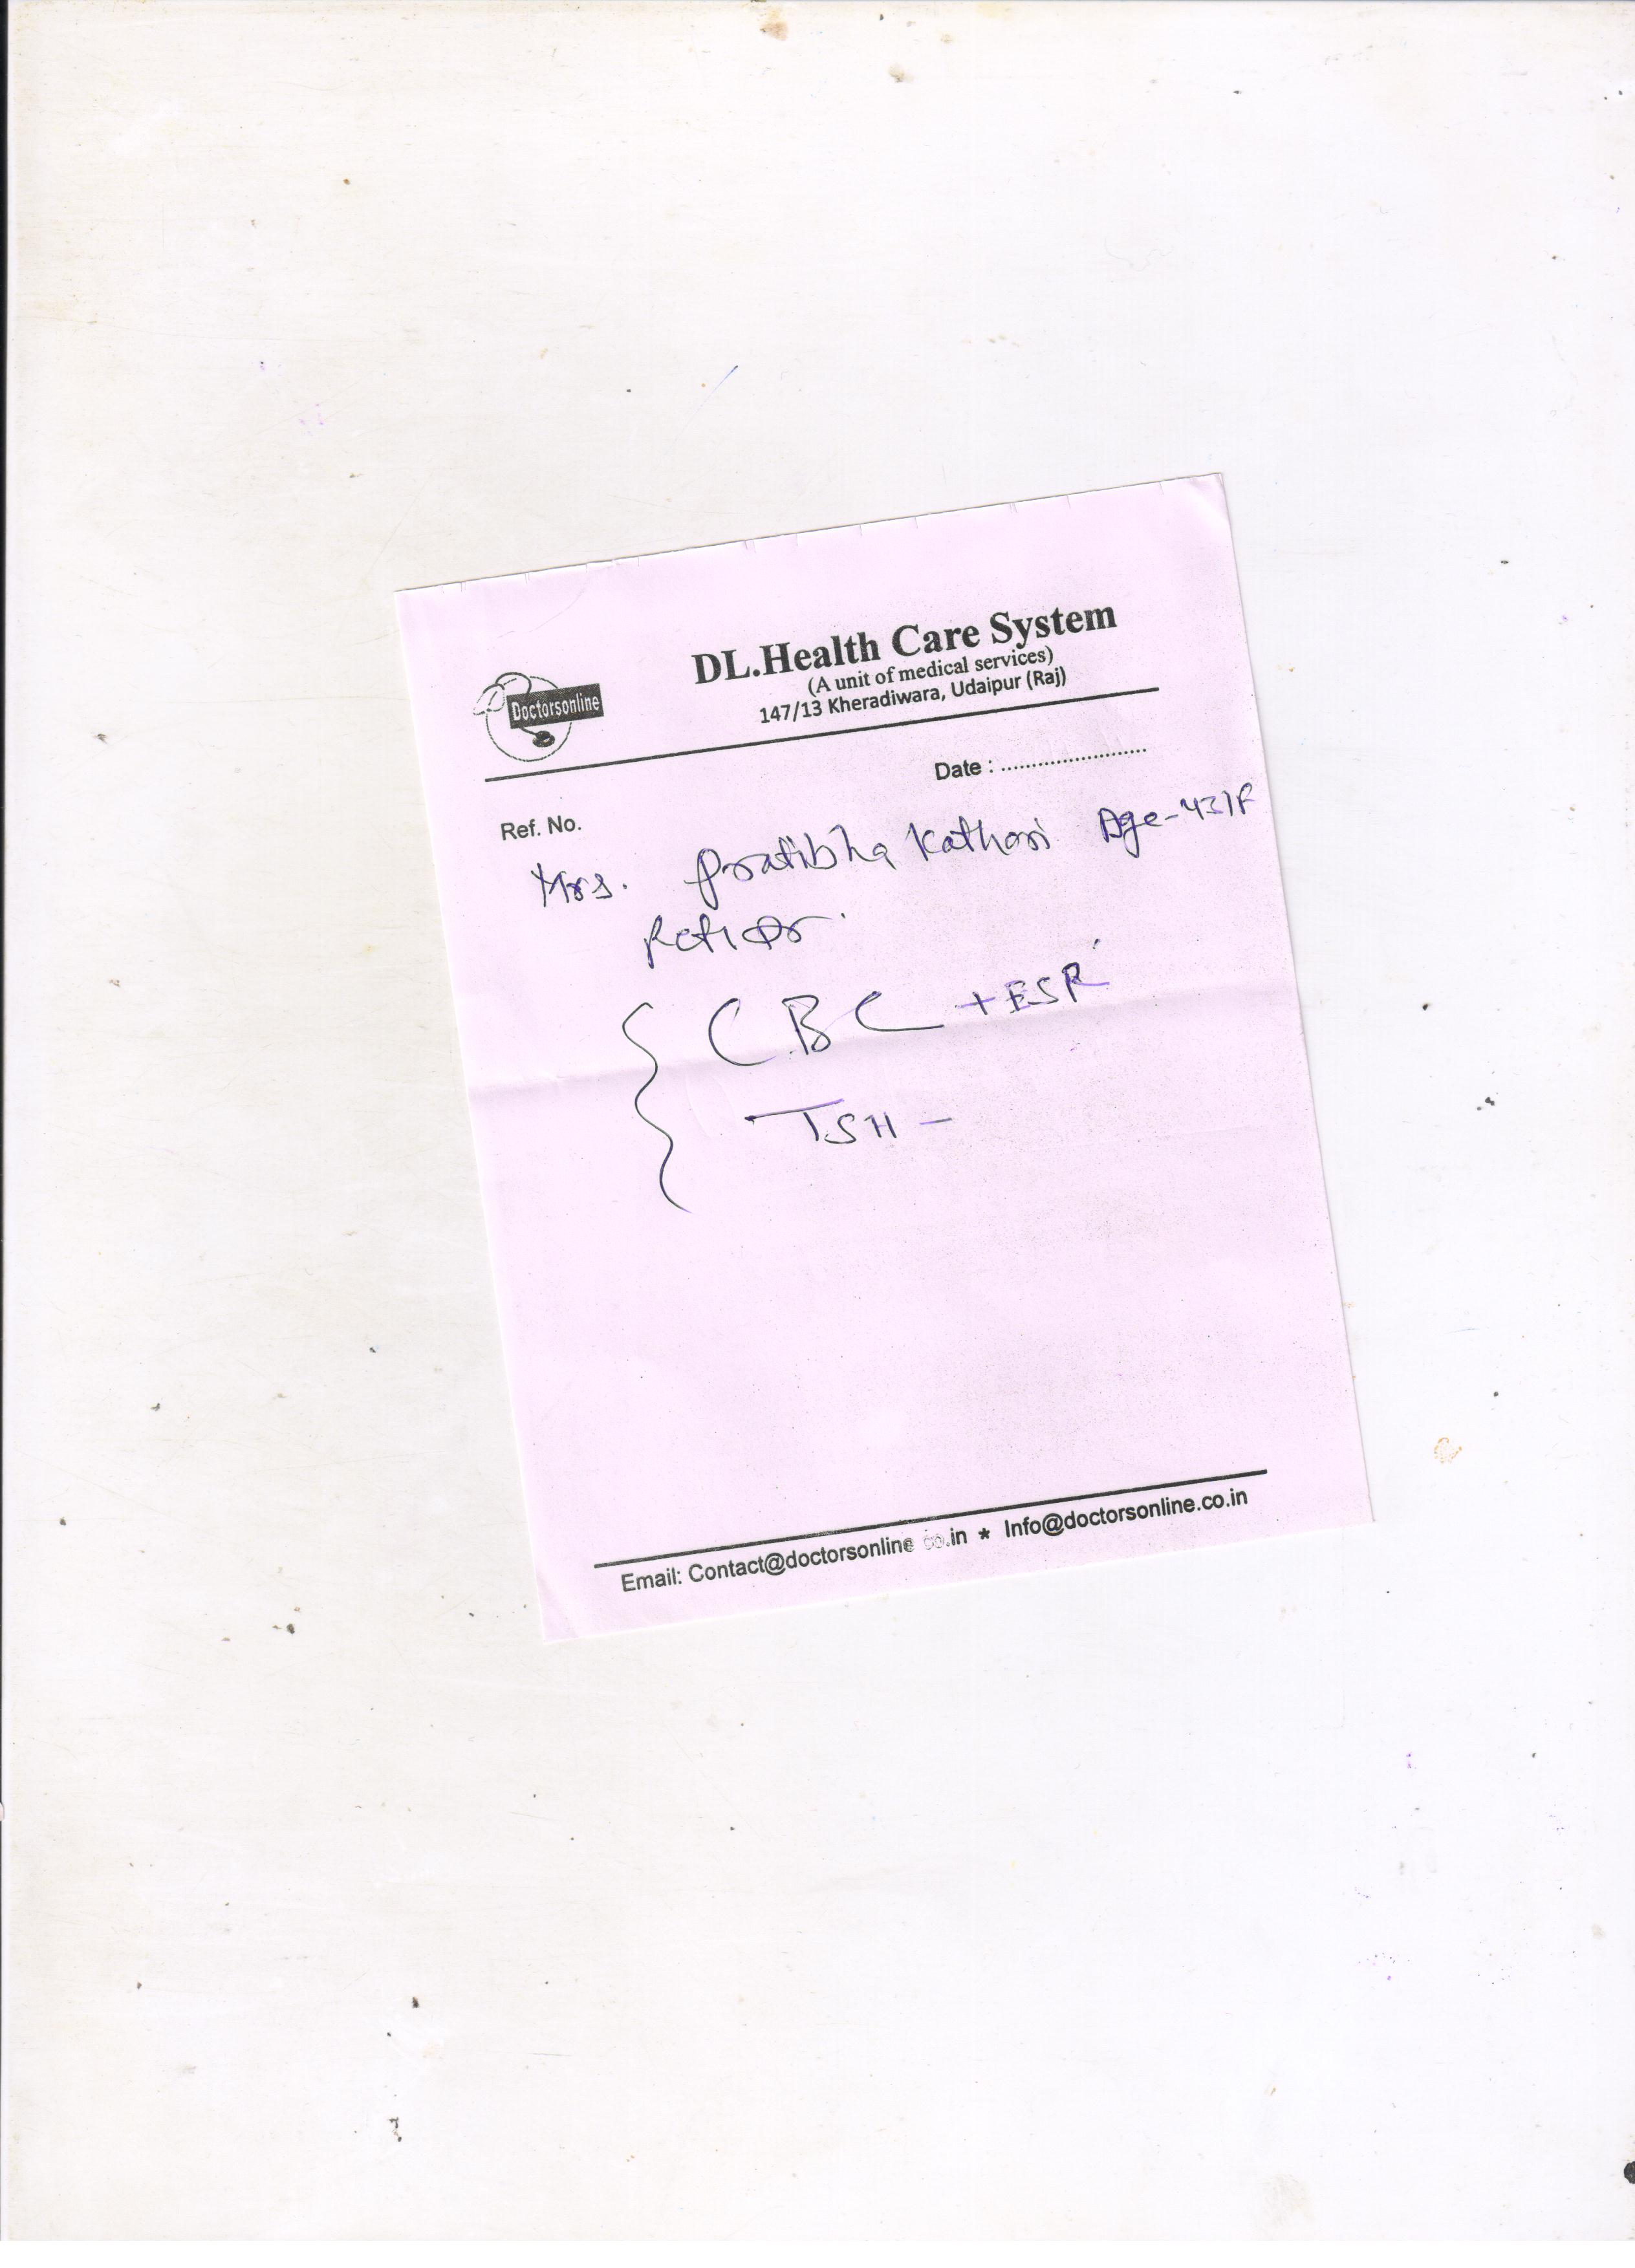 DL.Health Care System
(A unit of medical services)
147/13 Kheradiwara, Udaipur (Raj)
Doctorsonline
Date : ........................
Ref. No.
Mrs. Pratibha Kathori Age-43/F
CBC +ESR
TSH -
Email: Contact@doctorsonline co.in * Info@doctorsonline.co.in